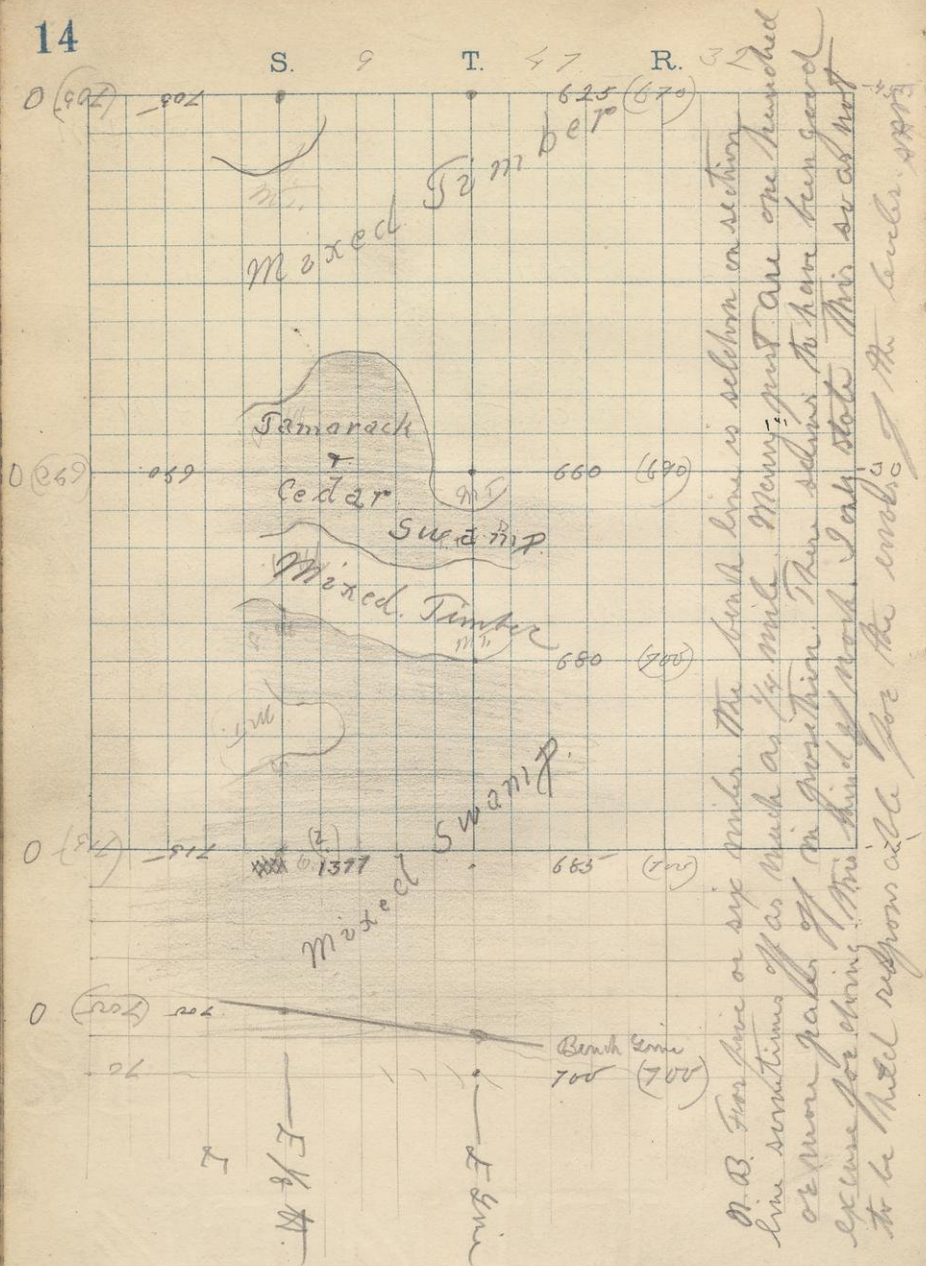 14
S. 9 T. 47 R. 32
0 (705) 705 625 (670)
Mixed Timber
Tamarack
+
Cedar
Swamp
0 (695) 690 660 (690)
M T
Mixed Timber
M T.
680 (700)
M.T.
0 715 1377 685 (700)
Mixed Swamp
0 (702) 702
Bench Line
700 (700)
E 1/8
E Line
N.B. For five or six miles the bench line is seldom on section
line sometimes off as much as 1/4 mile. Many post are one hundred
or more paces off in position. There seems to have been good
excuse for doing this kind of work. I only state this so as not
to be held responsible for the errors of the levels.